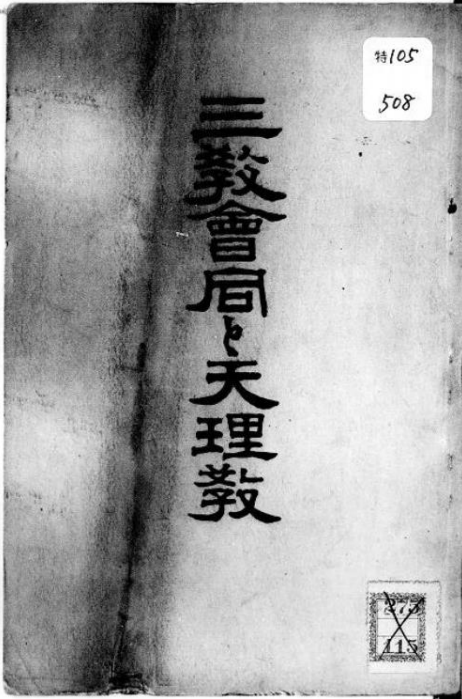 特105
508
三教會同と天理教
273
115